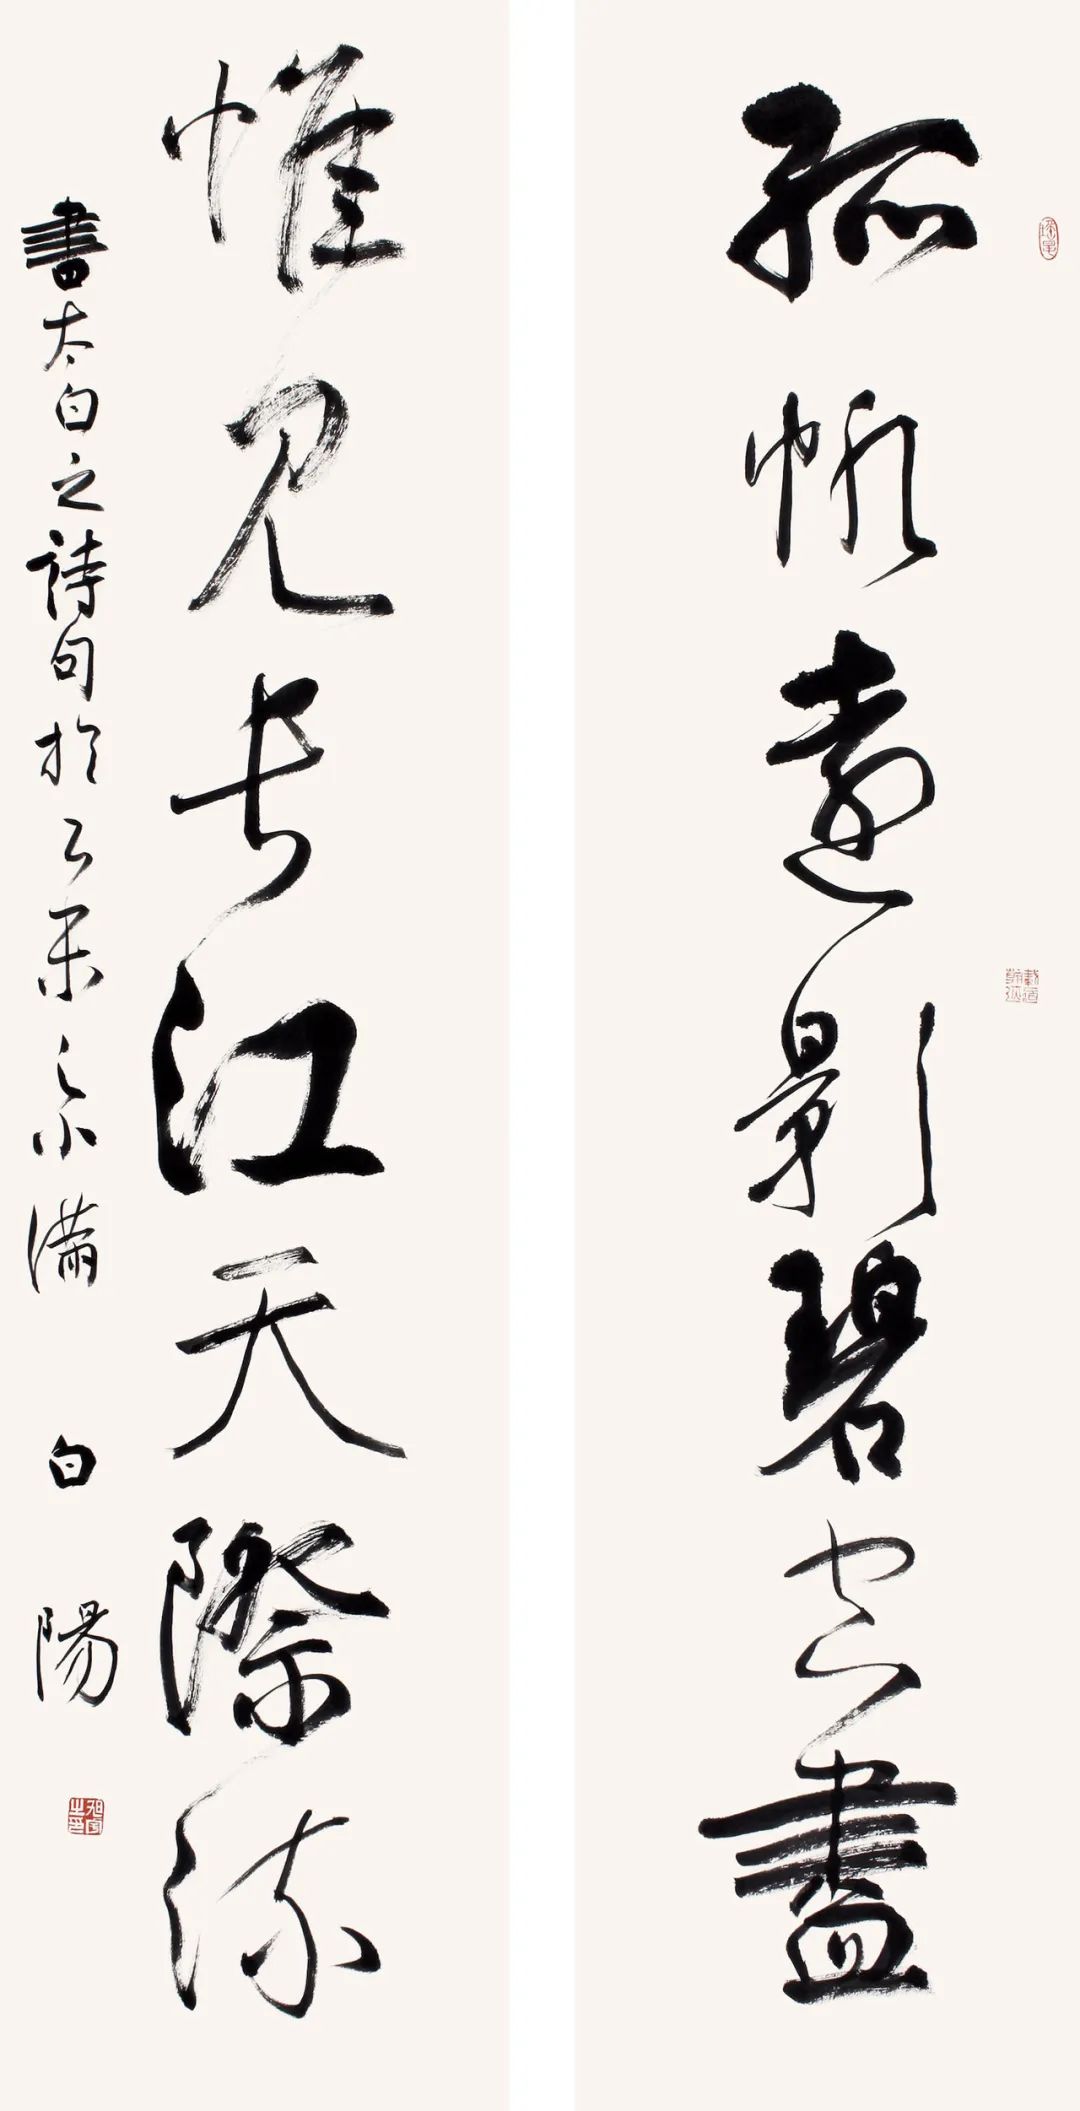 孤帆遠影碧空盡
惟見長江天際流
書太白之詩句於乙未之小滿 白陽